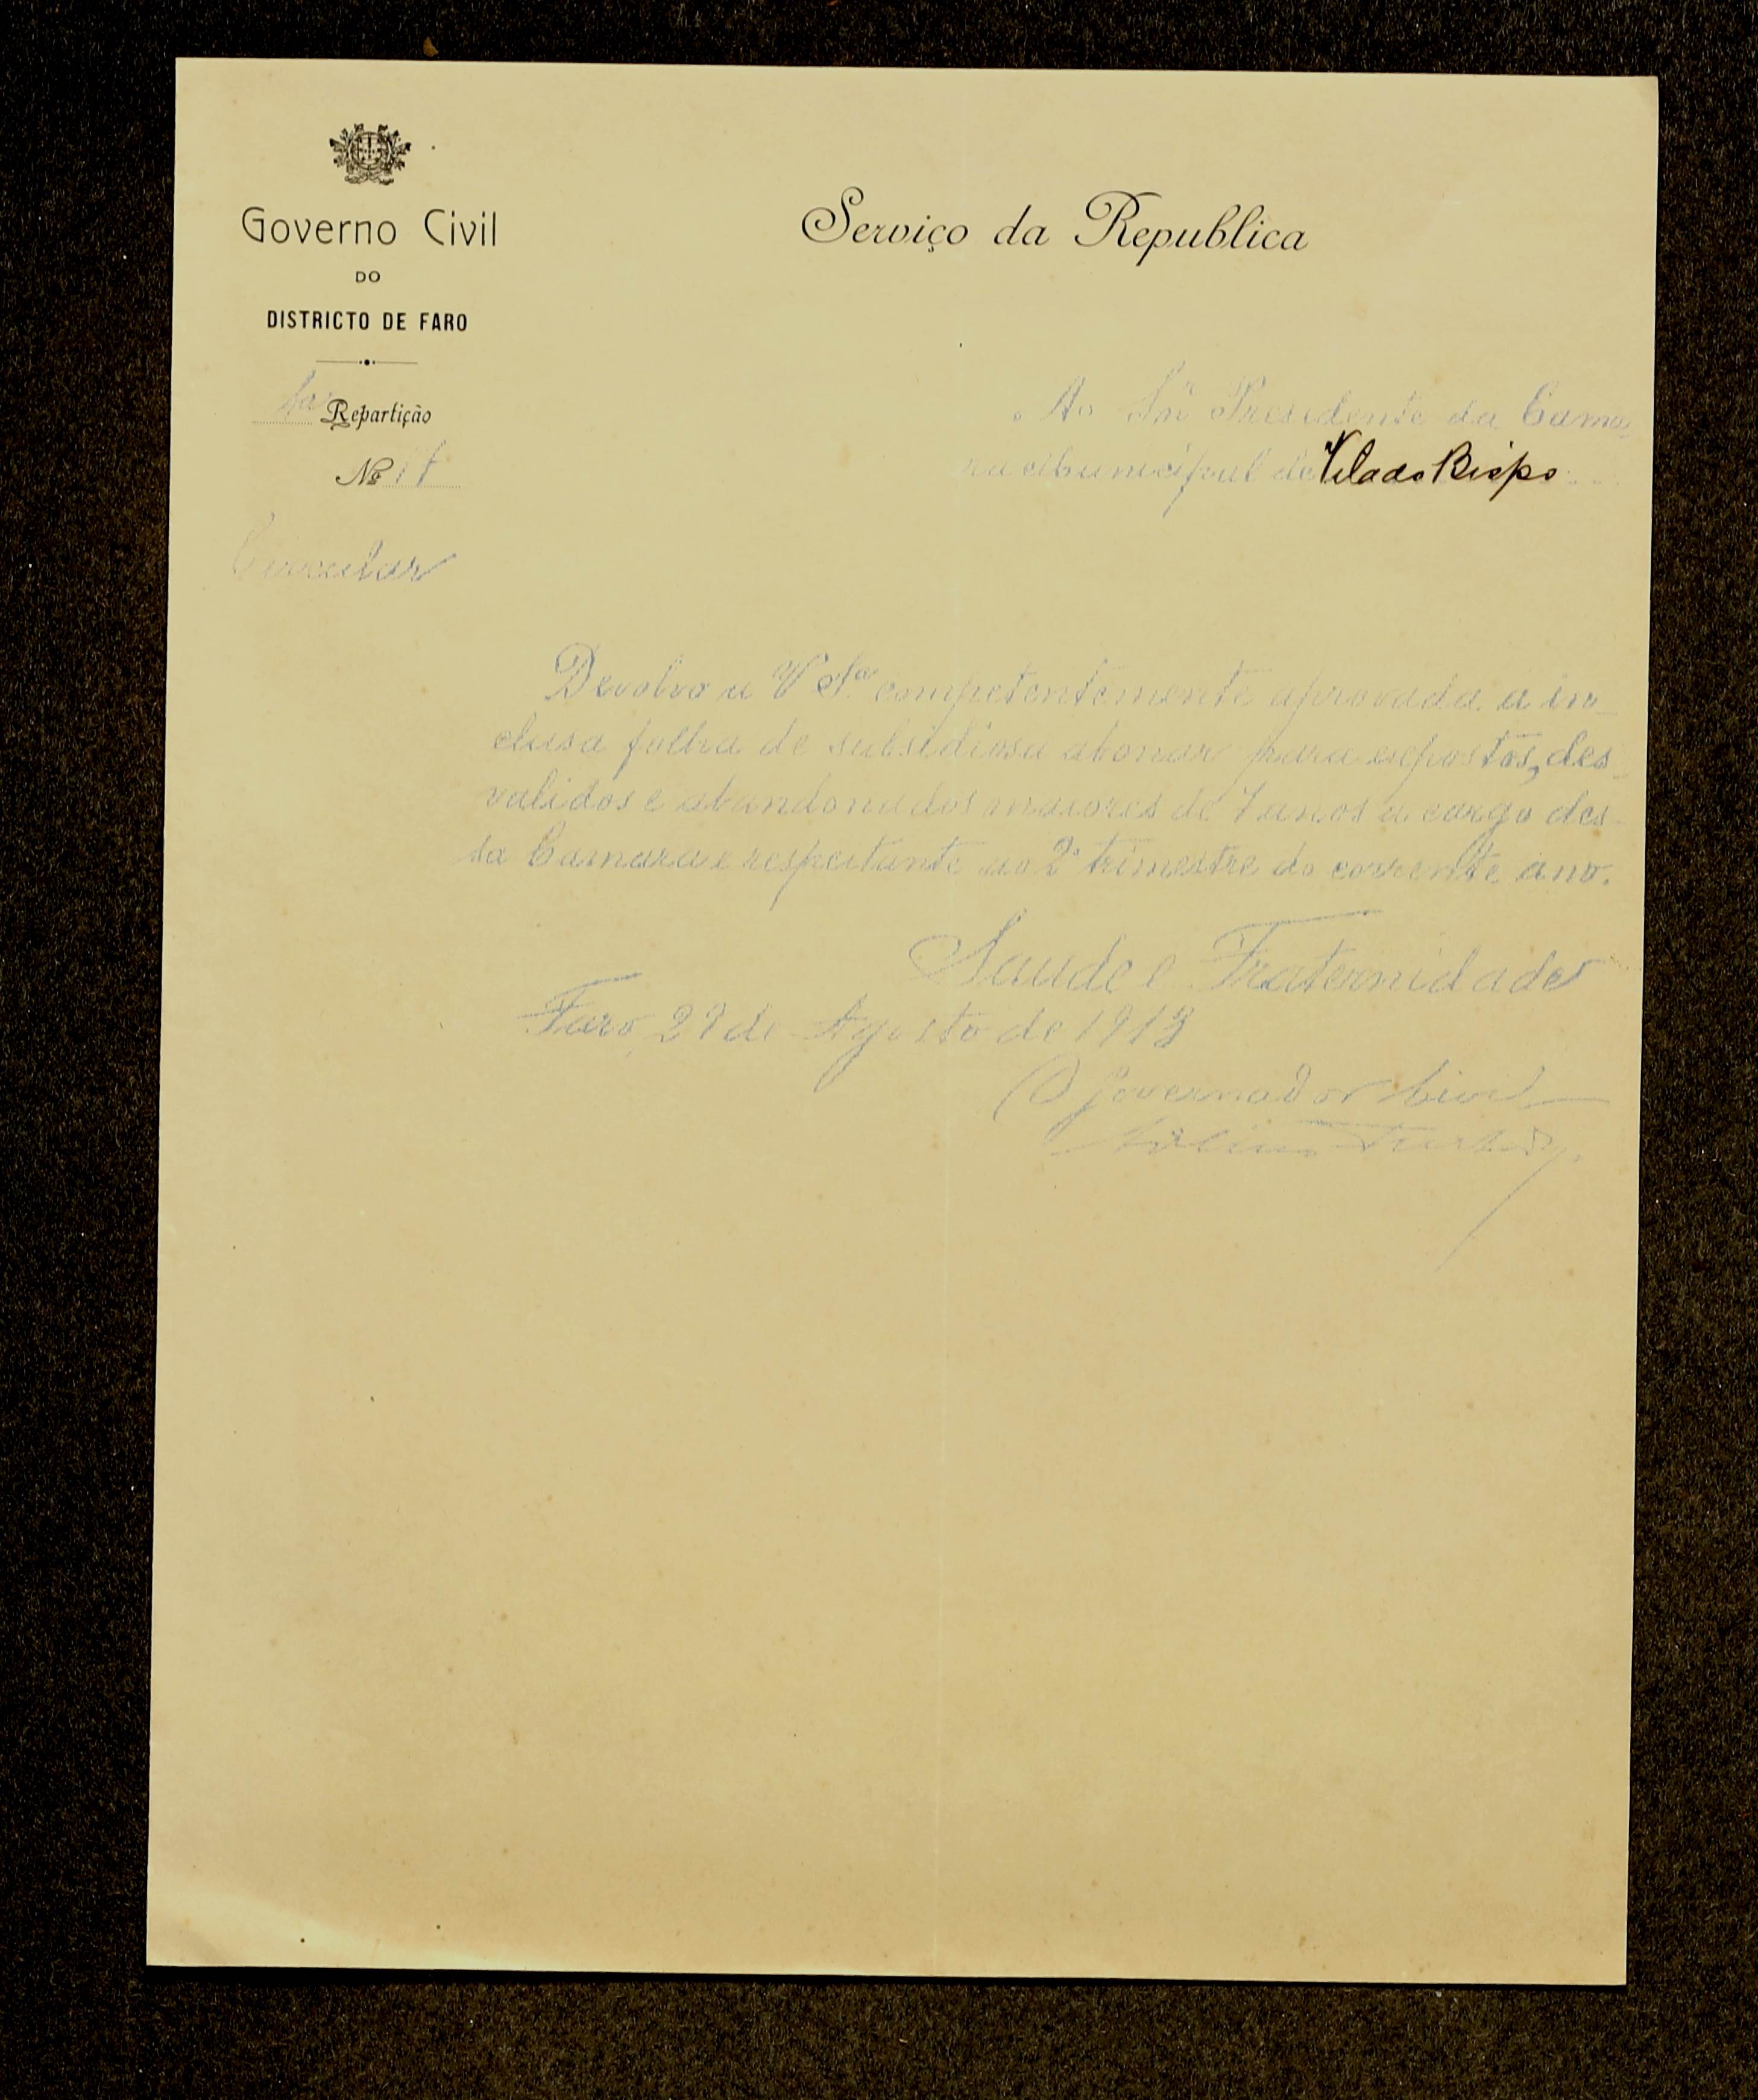 Governo Civil
DO
DISTRICTO DE FARO
1a Repartição
No 17
Circular
Serviço da Republica
Ao Snr Presidente da Cama-
ra Municipal de Vila do Bispo
Devolvo a V. Sa competentemente aprovada a in-
clusa folha de subsidios a abonar para expostos, des-
validos e abandonados maiores de 7 anos a cargo des-
sa Camara e respeitante ao 2o trimestre do corrente ano.
Saude e Fraternidade
Faro, 29 de Agosto de 1913
O Governador Civil